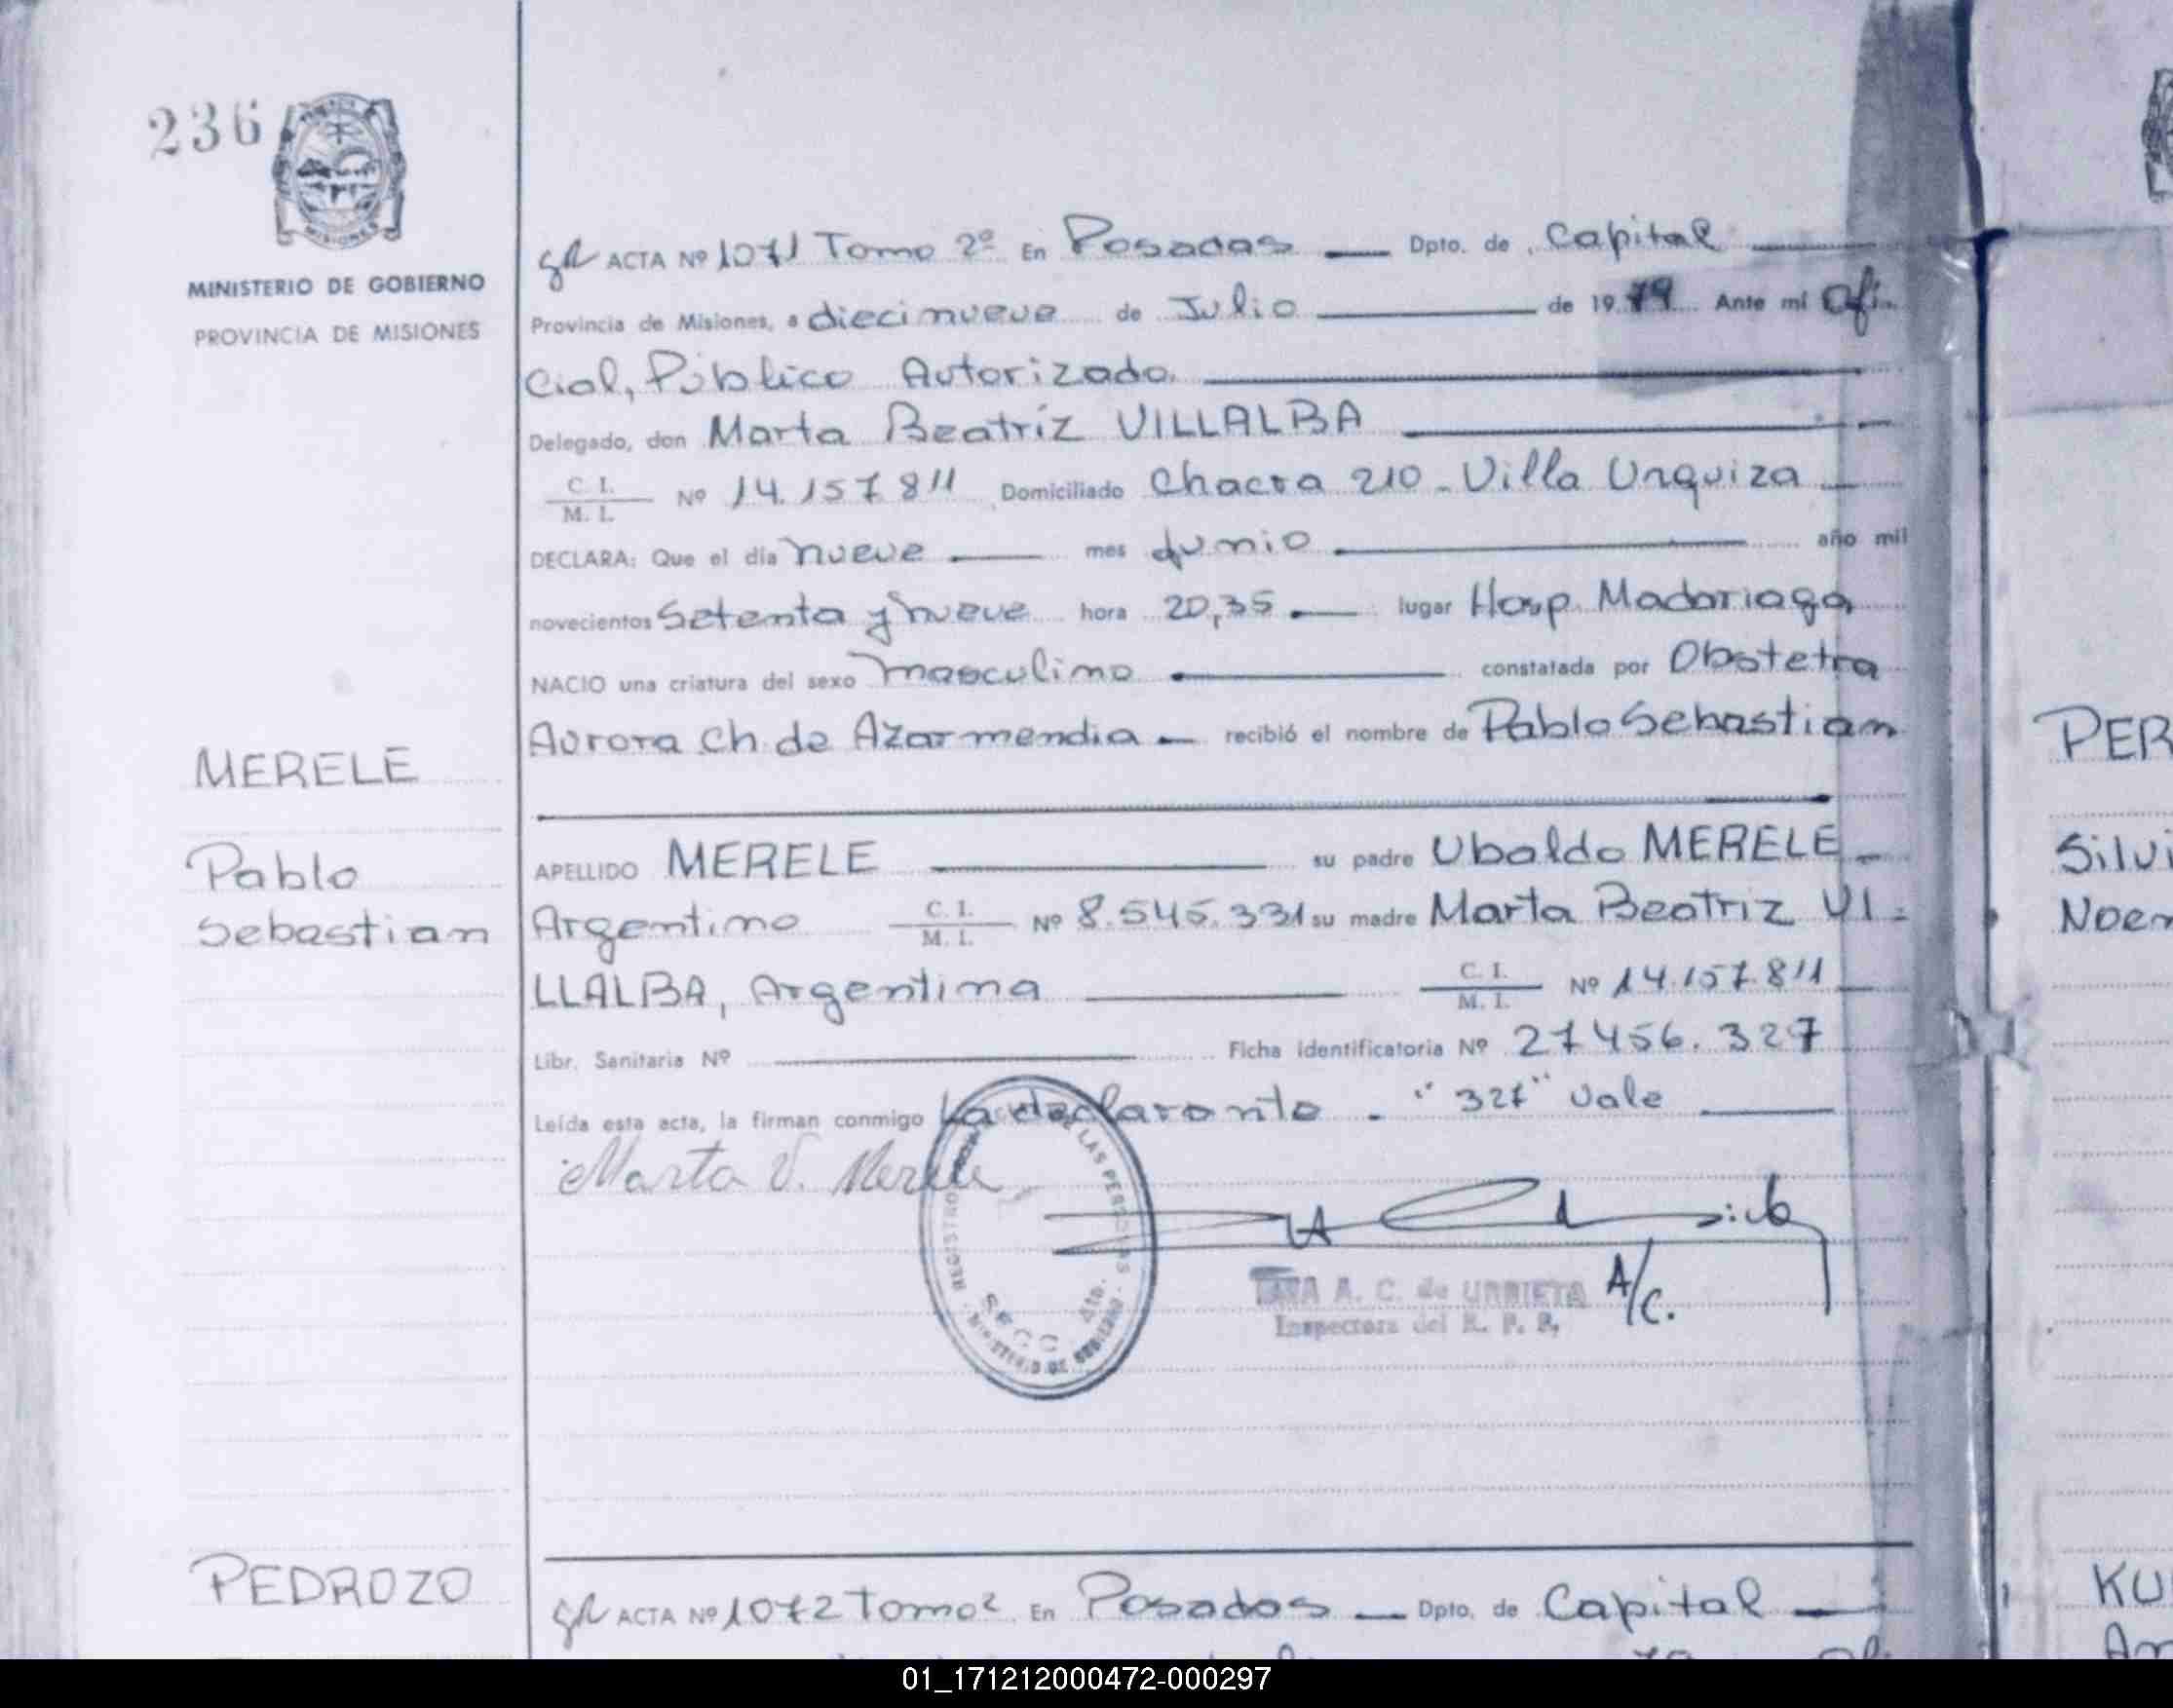 236
MINISTERIO DE GOBIERNO
PROVINCIA DE MISIONES
ACTA Nº 1071 Tomo 2º En Posadas — Dpto. de Capital
Provincia de Misiones, a diecinueve de Julio de 1979 Ante mi Ofi-
cial, Público Autorizado.
Delegado, don Marta Beatríz VILLALBA
C. I. / M. I. Nº 14.157811 Domiciliado Chacra 210 - Villa Urquiza
DECLARA: Que el día nueve mes Junio año mil
novecientos setenta y nueve hora 20,35 lugar Hosp. Madariaga
NACIO una criatura del sexo masculino constatada por Obstetra
Aurora Ch. de Azarmendia — recibió el nombre de Pablo Sebastian
MERELE
Pablo
Sebastian
APELLIDO MERELE su padre Ubaldo MERELE
Argentino C. I. / M. I. Nº 8.545.331 su madre Marta Beatriz VI-
LLALBA, Argentina C. I. / M. I. Nº 14.157.811
Libr. Sanitaria Nº Ficha identificatoria Nº 27456.327
Leída esta acta, la firman conmigo La declarante - "327" Vale
Marta V. Merele
REGISTRO DE LAS PERSONAS
SECC 4ta.
MINISTERIO DE GOBIERNO
A. C. de URRIETA A/C.
Inspectora del R. P. P.
PEDROZO
ACTA Nº 1072 Tomo 2 En Posadas — Dpto. de Capital
PER
Silvi
Noem
KU
An
01_171212000472-000297